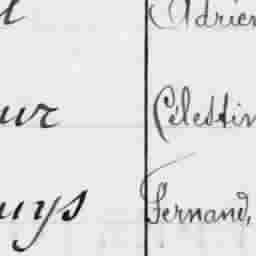 Adrien
ur Célestin
uys Fernand,